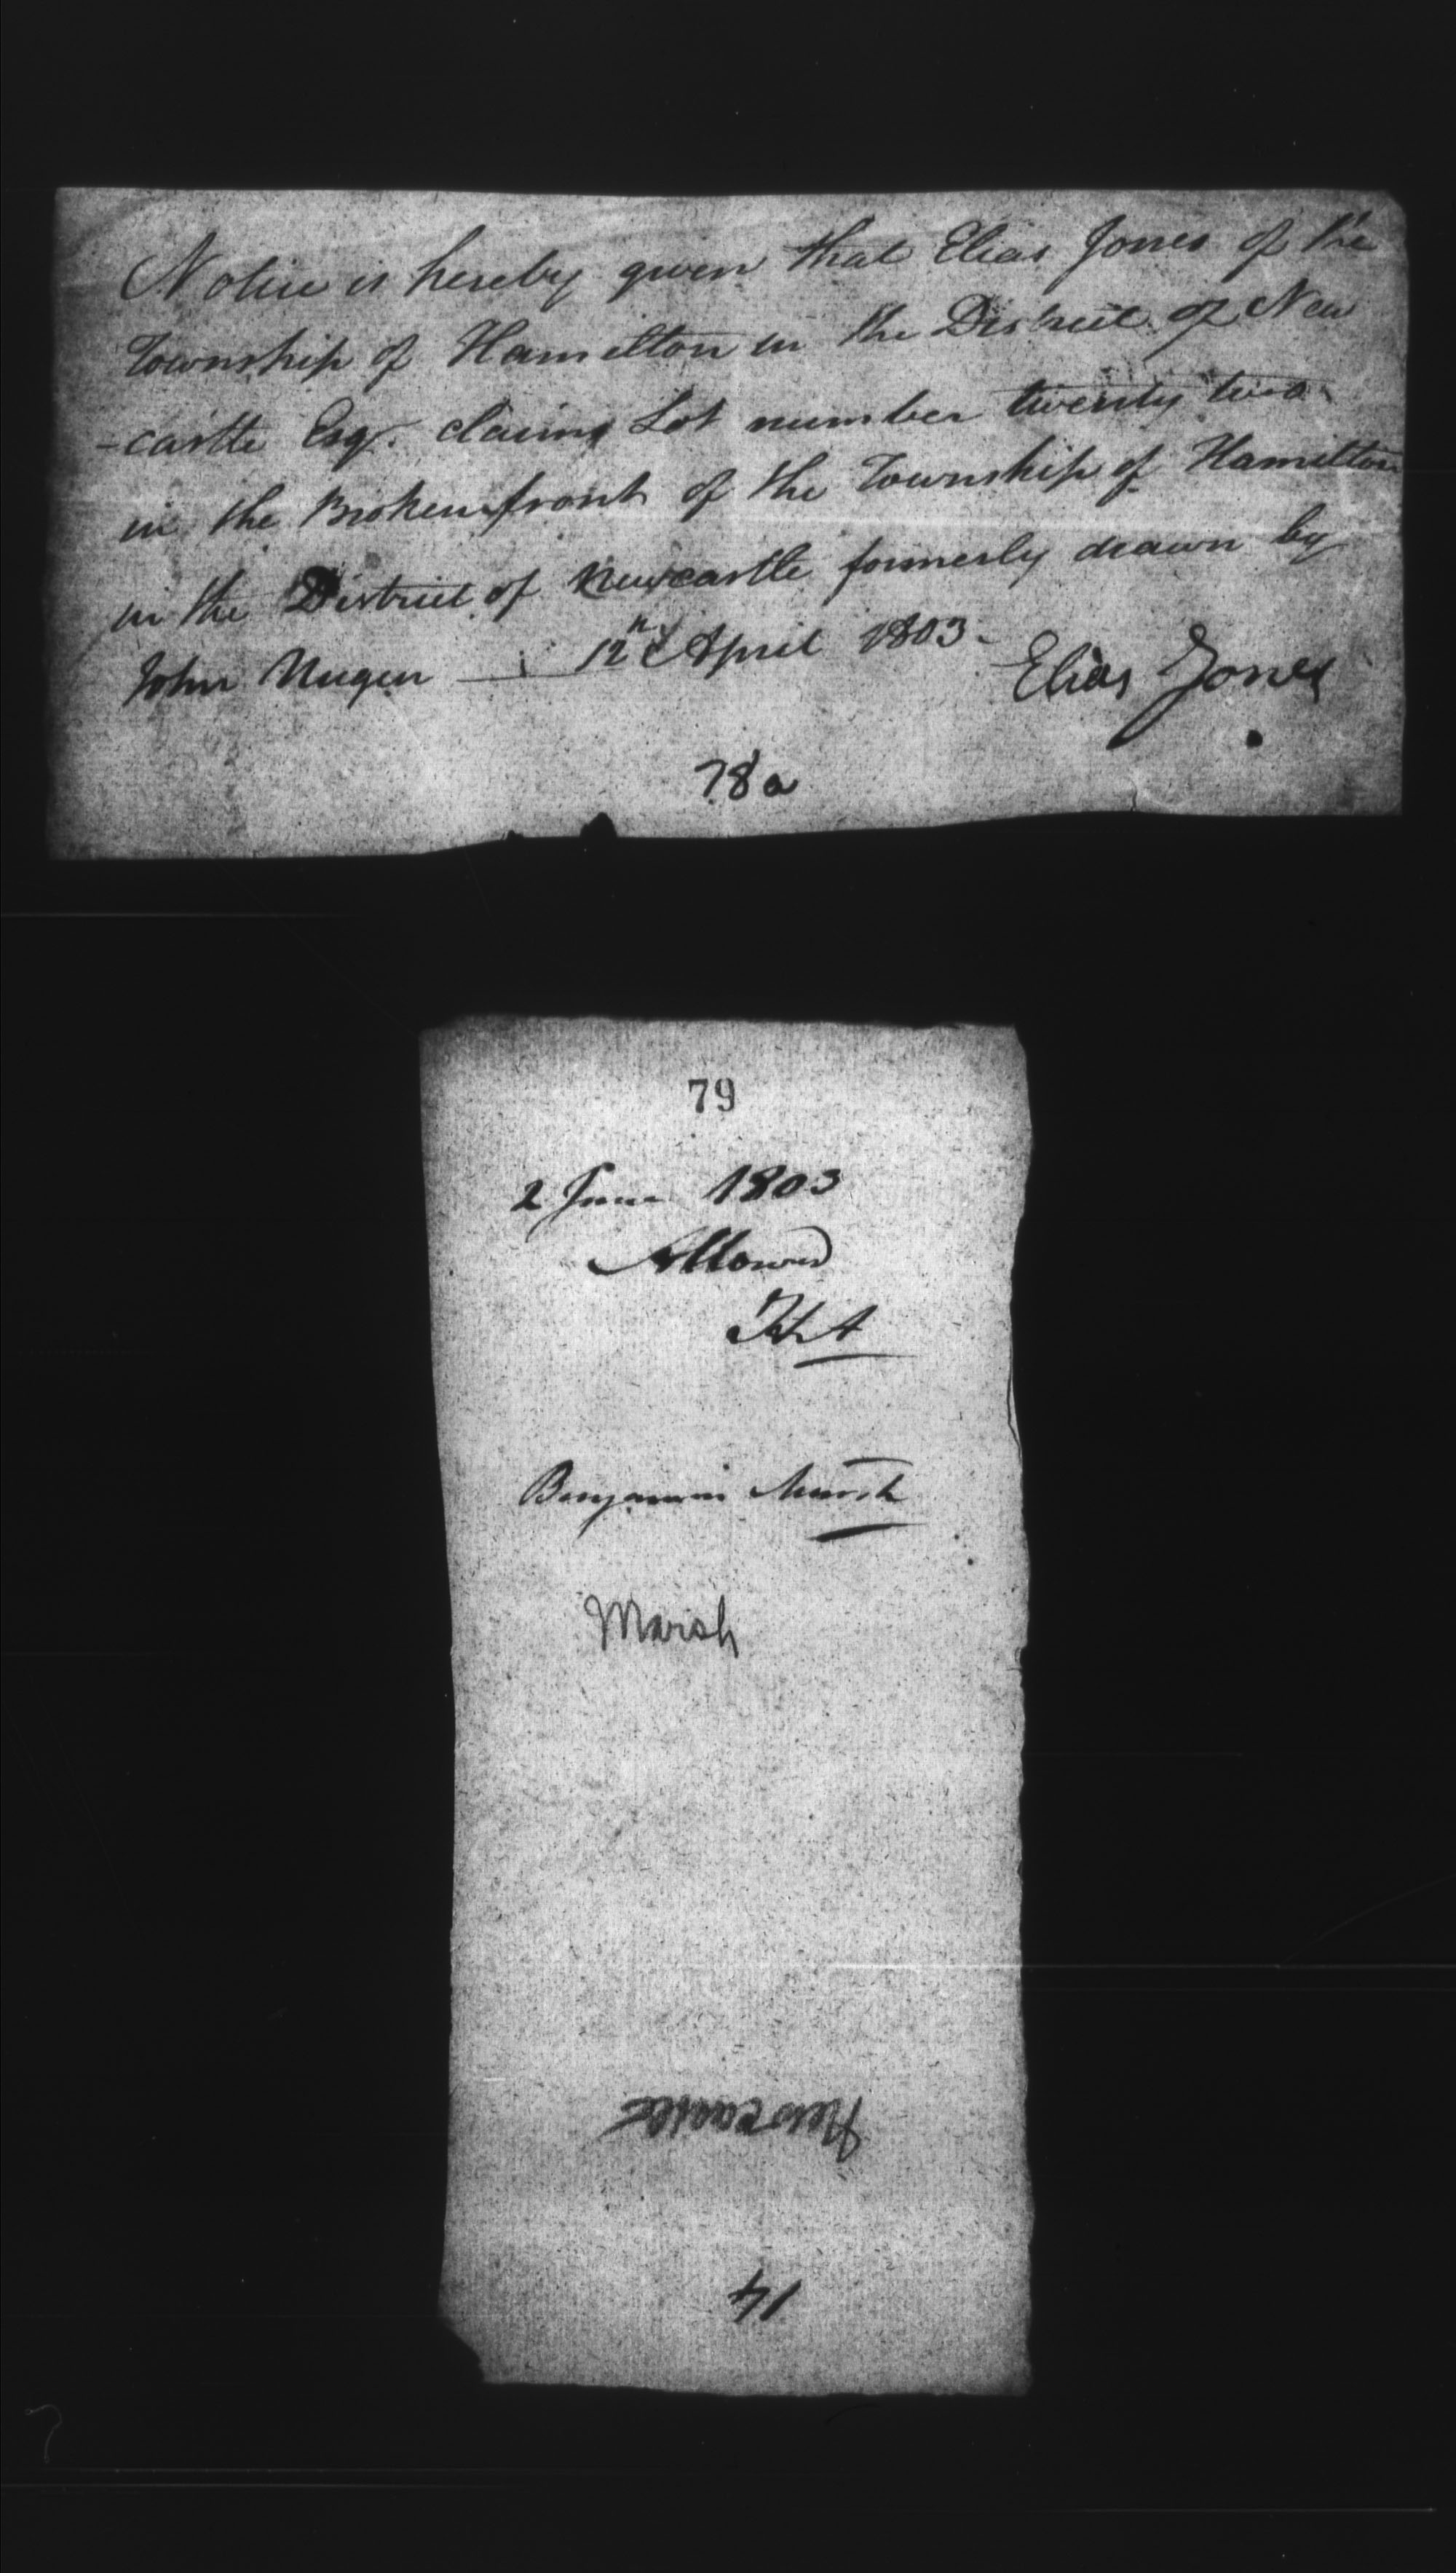 Notice is hereby given that Elias Jones of the
Township of Hamilton in the District of New
-castle Esqr. claims Lot number twenty two
in the Broken front of the Township of Hamilton
in the District of Newcastle formerly drawn by
John Nugen — 12th April 1803 -
Elias Jones
78a
79
2 June 1803
Allowed
Benjamin Marsh
Marsh
Newcastle
14